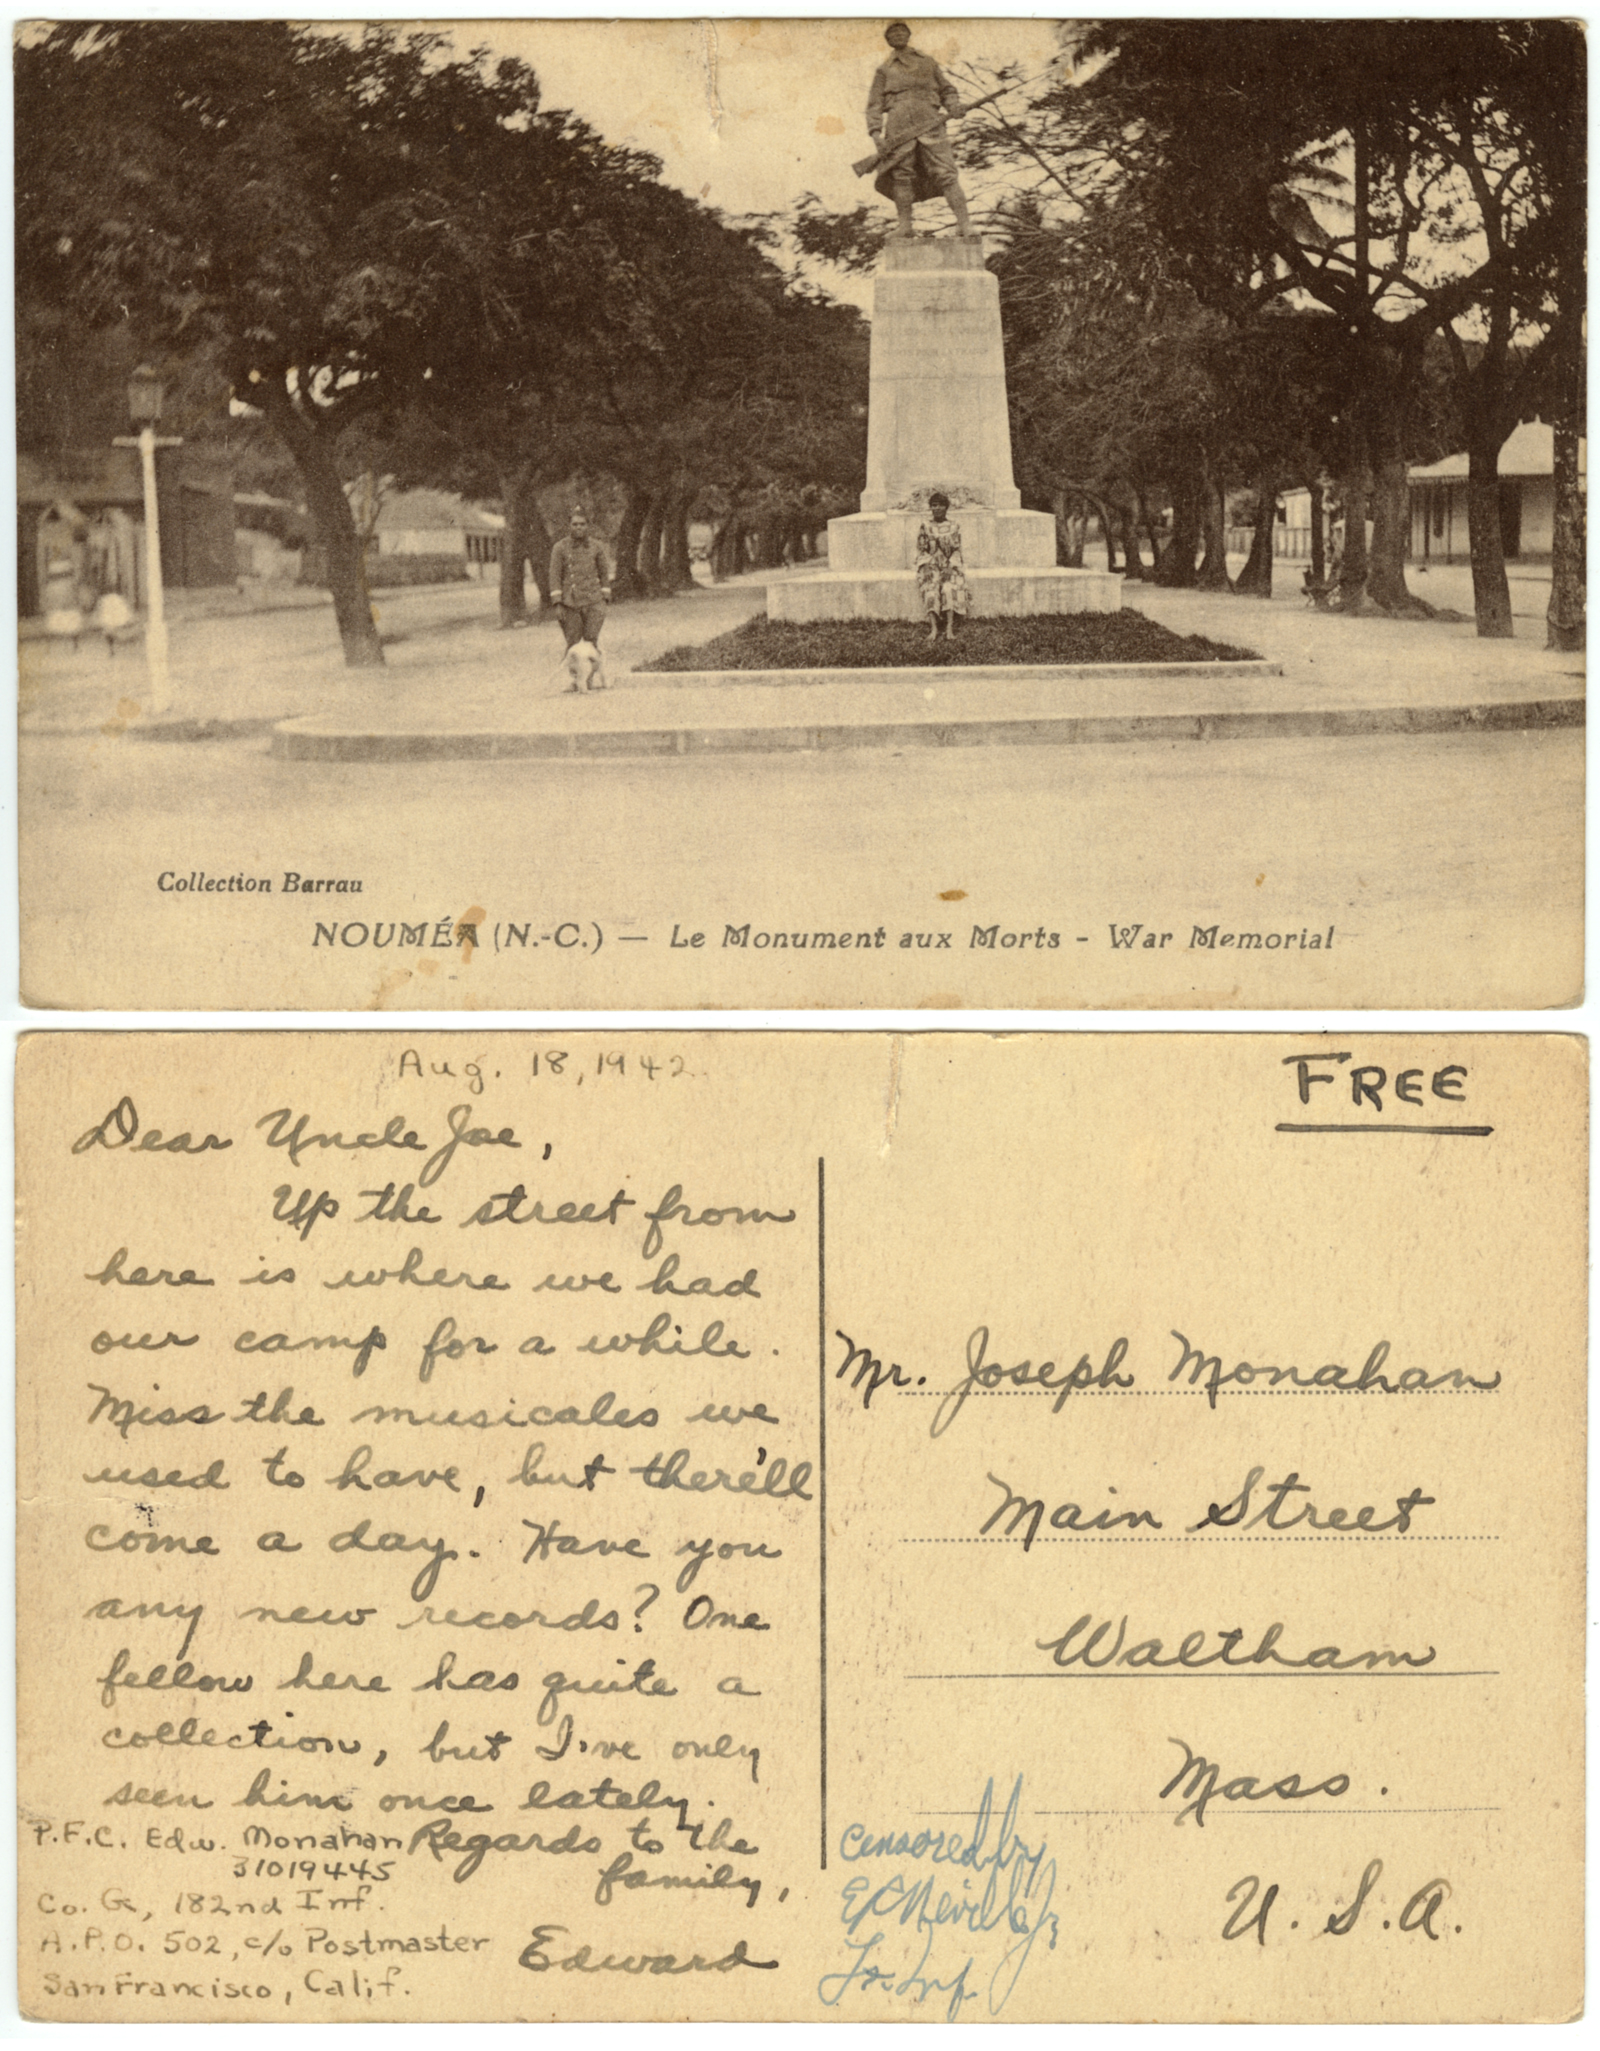 Collection Barrau
NOUMÉA (N.-C.) — Le Monument aux Morts - War Memorial
Aug. 18, 1942
Dear Uncle Joe,
Up the street from
here is where we had
our camp for a while.
Miss the musicales we
used to have, but there'll
come a day. Have you
any new records? One
fellow here has quite a
collection, but I've only
seen him once lately.
Regards to the
family,
Edward
P.F.C. Edw. Monahan
31019445
Co. G, 182nd Inf.
A.P.O. 502, c/o Postmaster
San Francisco, Calif.
FREE
Mr. Joseph Monahan
Main Street
Waltham
Mass.
U.S.A.
Censored by